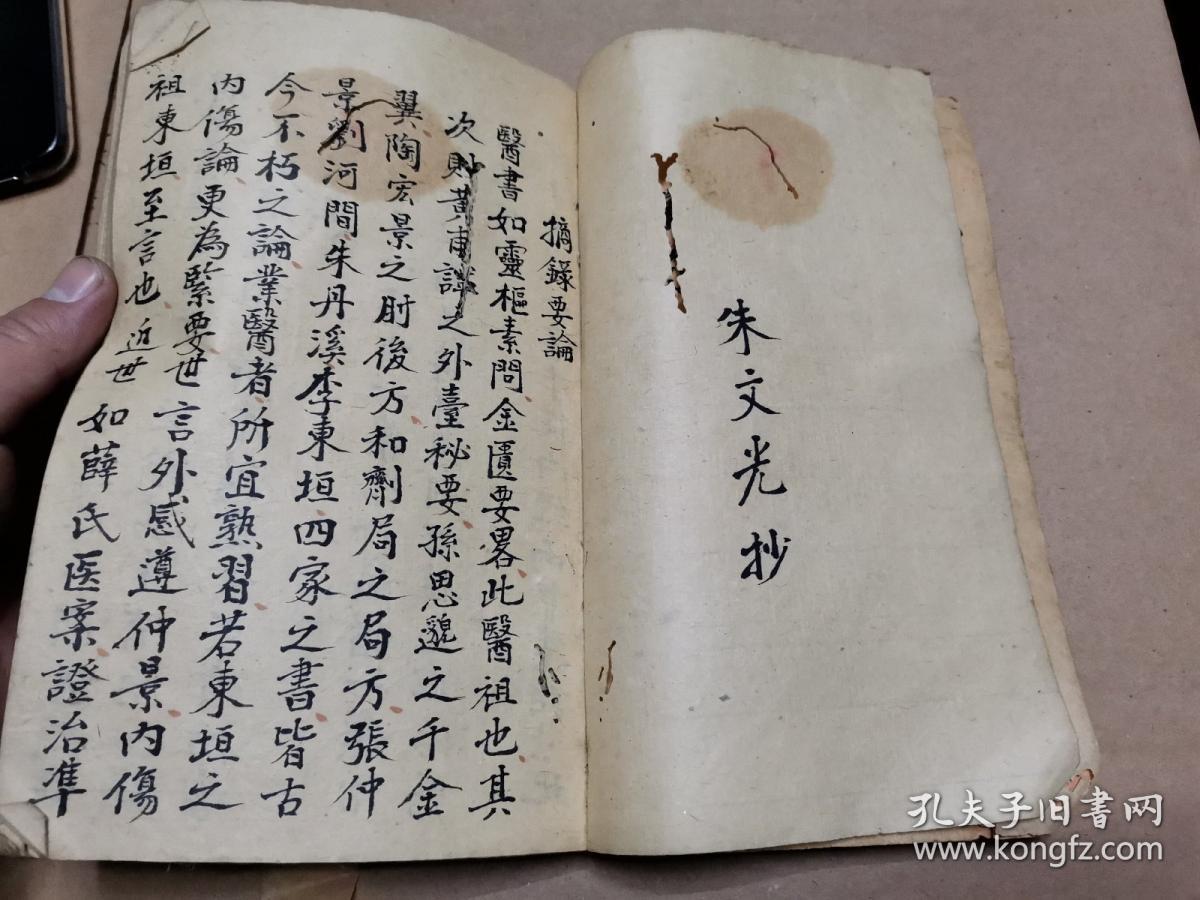 朱文光抄
摘錄要論
醫書如靈樞素問金匱要畧此醫祖也其
次則黃甫謐之外臺秘要孫思邈之千金
翼陶宏景之肘後方和劑局之局方張仲
景劉河間朱丹溪李東垣四家之書皆古
今不朽之論業醫者所宜熟習若東垣之
內傷論更為緊要世言外感遵仲景內傷
祖東垣至言也近世如薛氏医案證治準
孔夫子旧书网
www.kongfz.com